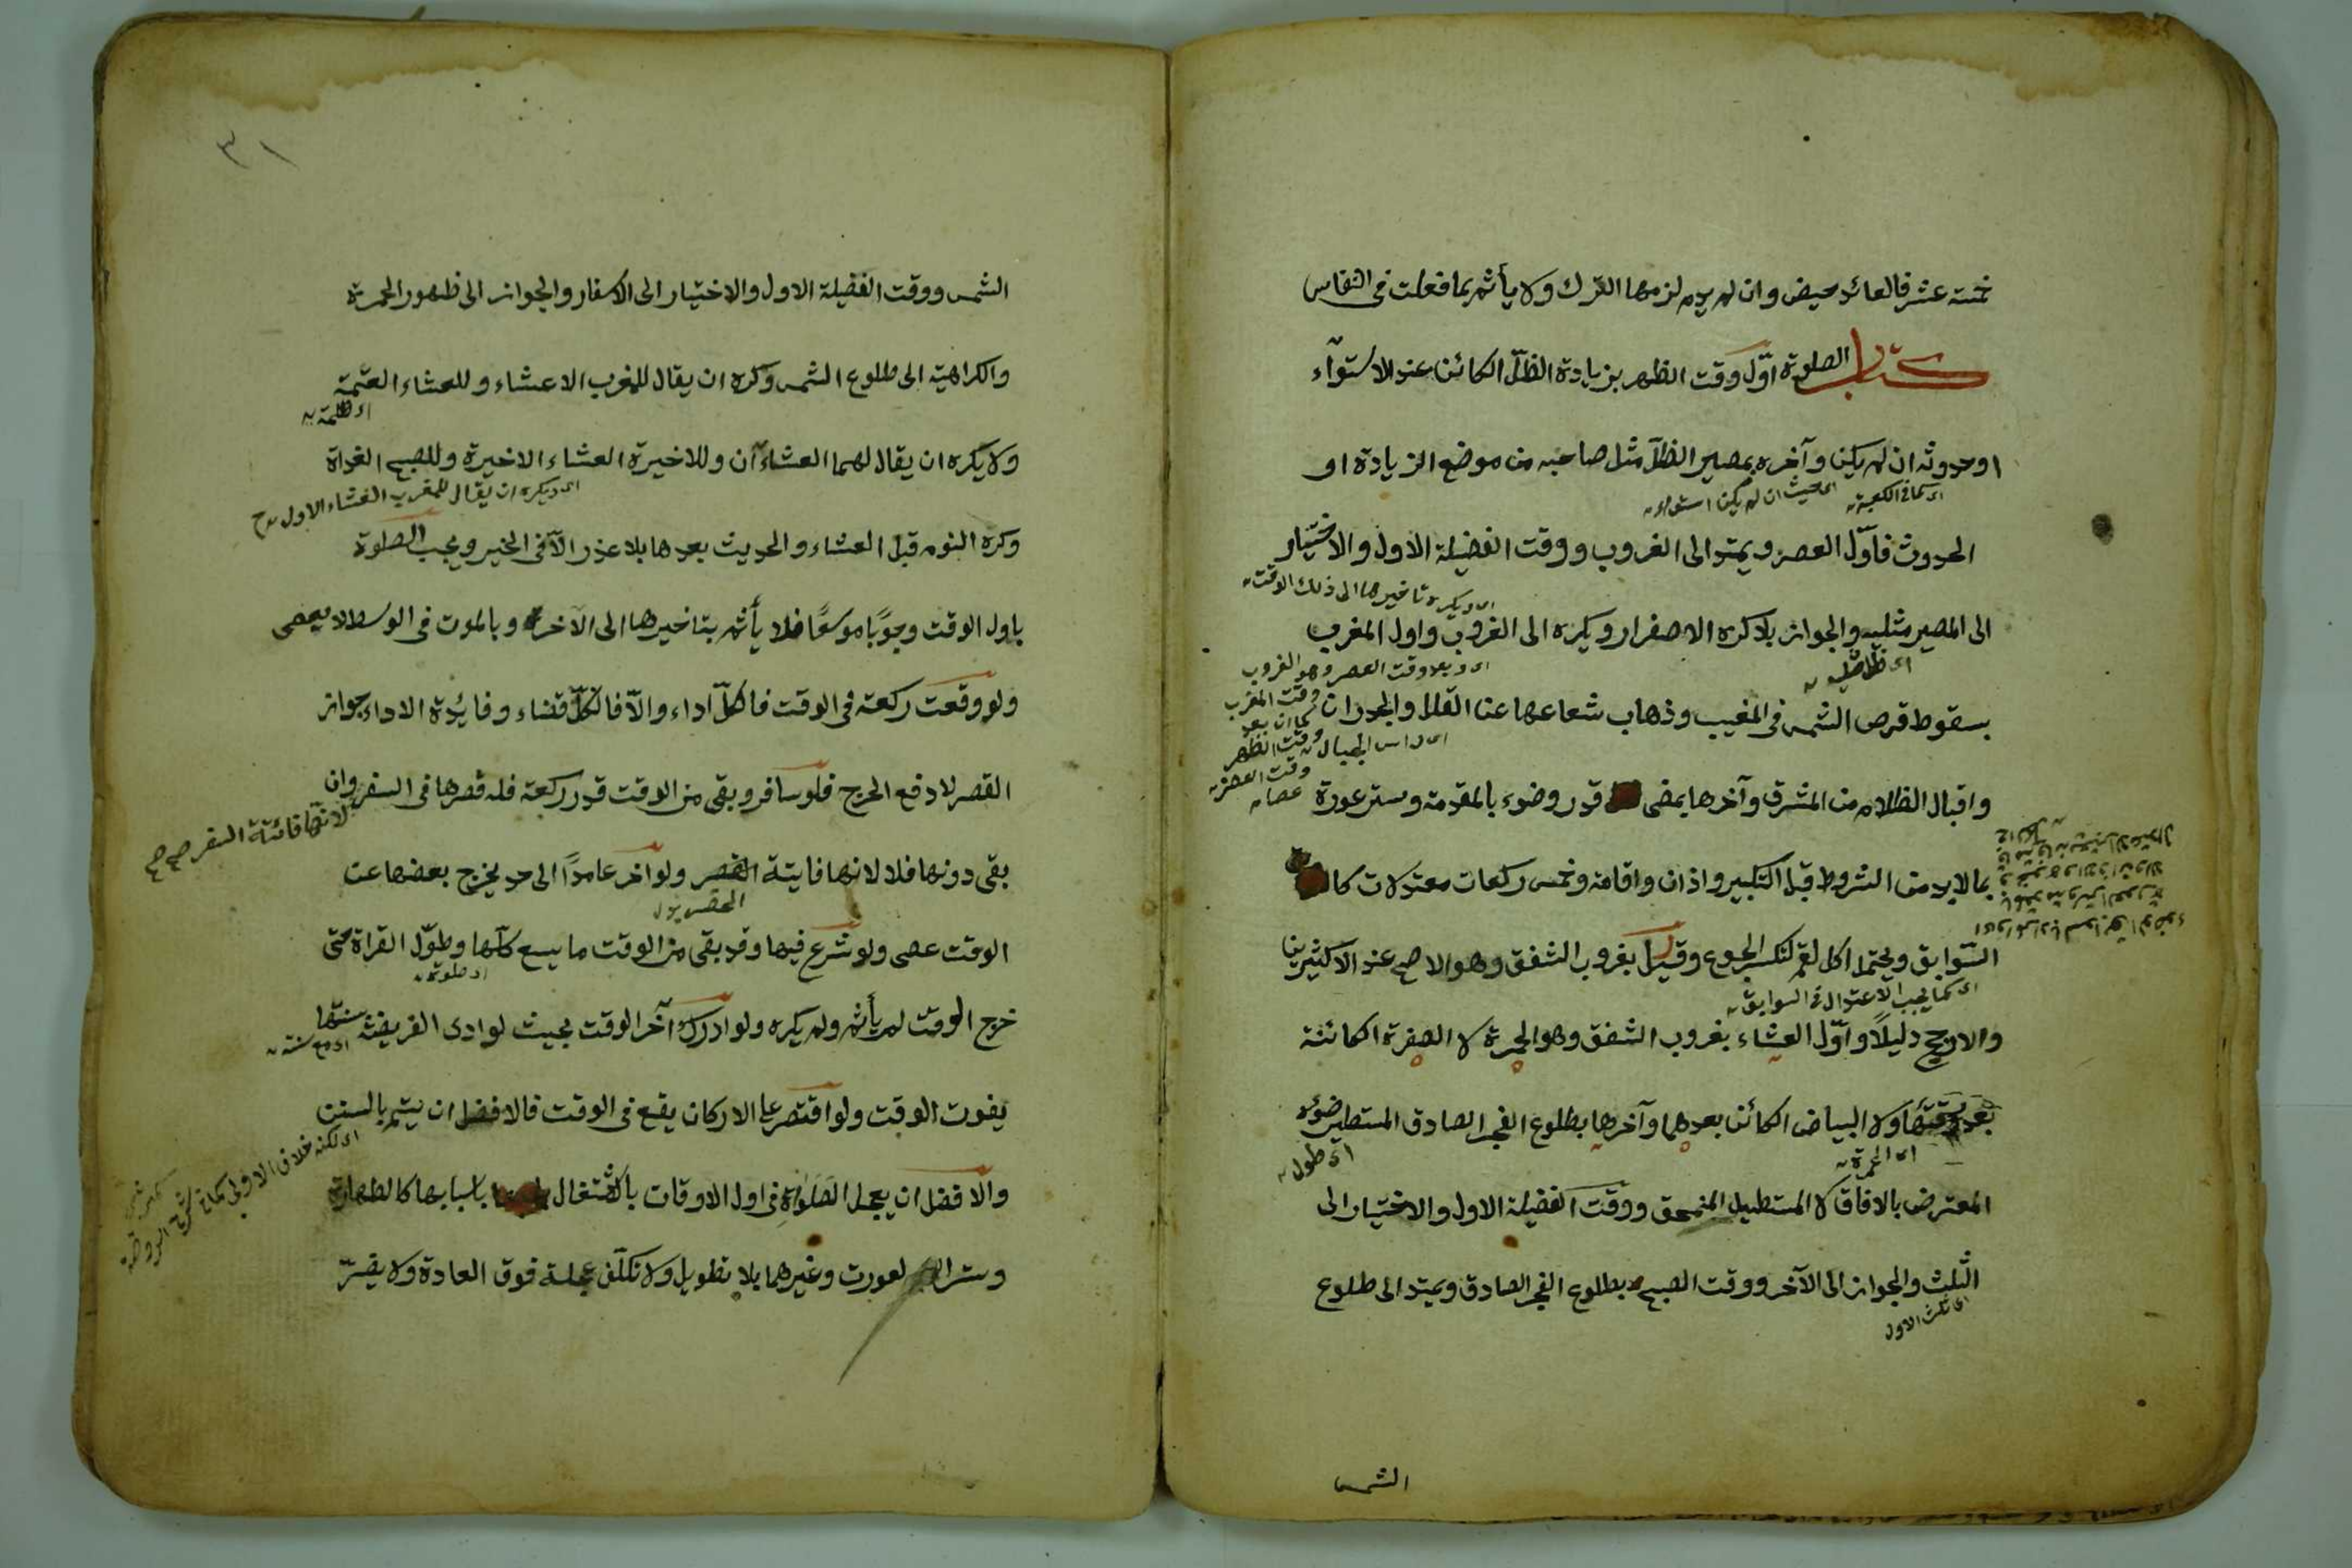 خمسة عشر فالعائد حيض وان لم يدم لزمها الترك ولا يأثم بما فعلت فى النفاس
كتاب الصلوة اوّل وقت الظهر بزيادة الظلّ الكائن عند الاستوآء
او حدوثه ان لم يكن وآخره بمصير الظلّ مثل صاحبه من موضع الزيادة او
اى كما فى الكعبة
اى حيث ان لم يكن استواء
الحدوث فاوّل العصر ويمتد الى الغروب ووقت الفضيلة الاول والاختيار
اى ويكره تاخيرها الى ذلك الوقت
الى المصير مثليه والجواز بلا كره الاصفرار ويكره الى الغروب واول المغرب
اى ظل مثليه
اى وبعد وقت العصر وهو الغروب
وقت المغرب
كما ان بعد
وقت الظهر
وقت العصر
بسقوط قرص الشمس فى المغيب وذهاب شعاعها عن القلل والجدران
اى راس الجبال
واقبال الظلام من المشرق وآخرها بمضى قدر وضوء بالمقدمة وستر عورة
بما لا بد من الشروط قبل التكبير واذان واقامة وخمس ركعات معتدلات كا
السّوابق ويحتمل اكل لقم لتكسر الجوع وقيل بغروب الشفق وهو الاصح عند الاكثرين
اى كما يجب الاعتدال فى السوابق
والارجح دليلاً واوّل العشاء بغروب الشفق وهو الحمرة لا الصفرة الكائنة
بعد ولا البياض الكائن بعدهما وآخرها بطلوع الفجر الصادق المستطير ضوءه
اى الحمرة
اى طول
المعترض بالافاق لا المستطيل المنمحق ووقت الفضيلة الاول والاختيار الى
الثلث والجواز الى الآخر ووقت الصبح بطلوع الفجر الصادق ويمتد الى طلوع
اى ثلث الاول
الشمس
٣١
الشمس ووقت الفضيلة الاول والاختيار الى الاسفار والجواز الى ظهور الحمرة
والكراهية الى طلوع الشمس وكره ان يقال للمغرب الاعشاء وللعشاء العتمة
اى ظلمة
ولا يكره ان يقال لهما العشاءآن وللاخيرة العشاء الاخيرة وللصبح الغداة
اى ويكره ان يقال للمغرب العشاء الاول
وكره النوم قبل العشاء والحديث بعدها بلا عذر الّا فى الخير ويجب الصلوة
باول الوقت وجوبًا موسعًا فلا يأثم بتاخيرها الى الآخر وبالموت فى الوسط لا يعصى
ولو وقعت ركعة فى الوقت فا كلّ اداء والّا فالكلّ قضاء وفائدة الاداء جواز
القصر لا دفع الحرج فلو سافر وبقى من الوقت قدر ركعة فله قصرها فى السفر وان
لانها فائتة السفر صح صح
بقى دونها فلا لانها فايتة ولو اخر عامدًا الى حد يخرج بعضها عن
الحضر بدل
الوقت عصى ولو شرع فيها وقد بقى من الوقت ما يسع كلّها وطوّل القراة حتى
اى صلوة
خرج الوقت لم يأثم ولم يكره ولو ادرك آخر الوقت بحيث لو ادى الفريضة بسننها
اى مع سننه
يفوت الوقت ولو اقتصر على الاركان يقع فى الوقت فالافضل ان يتم بالسنن
اى لكنه خلاف الاولى كما فى شرح الروضة
والافضل ان يعجل الصلوة فى اول الاوقات بالاشتغال باسبابها كالطهارة
وستر العورت وغيرهما بلا تطويل ولا تكلّف عجلة فوق العادة ولا يضرّ